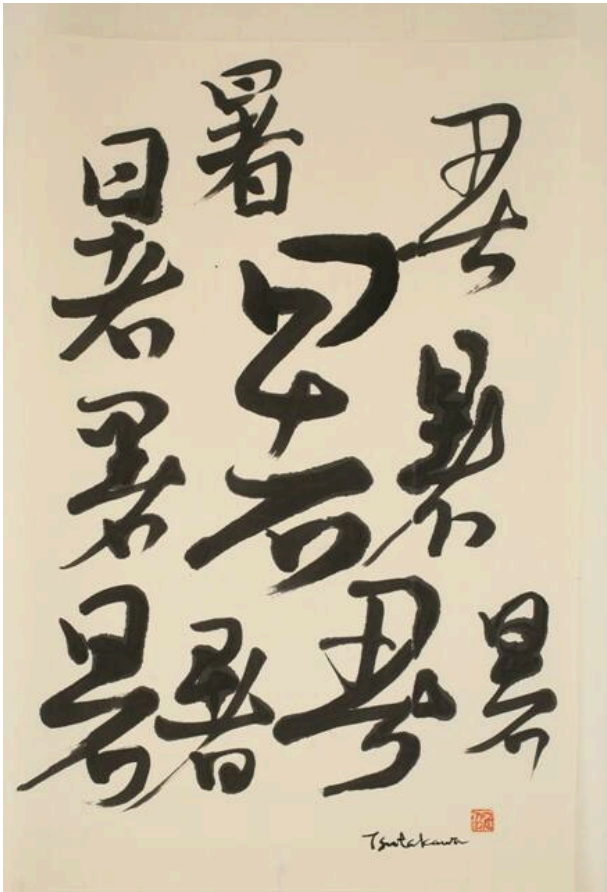 暑
暑
暑
暑
暑
暑
暑
暑
暑
暑
Tsutakawa